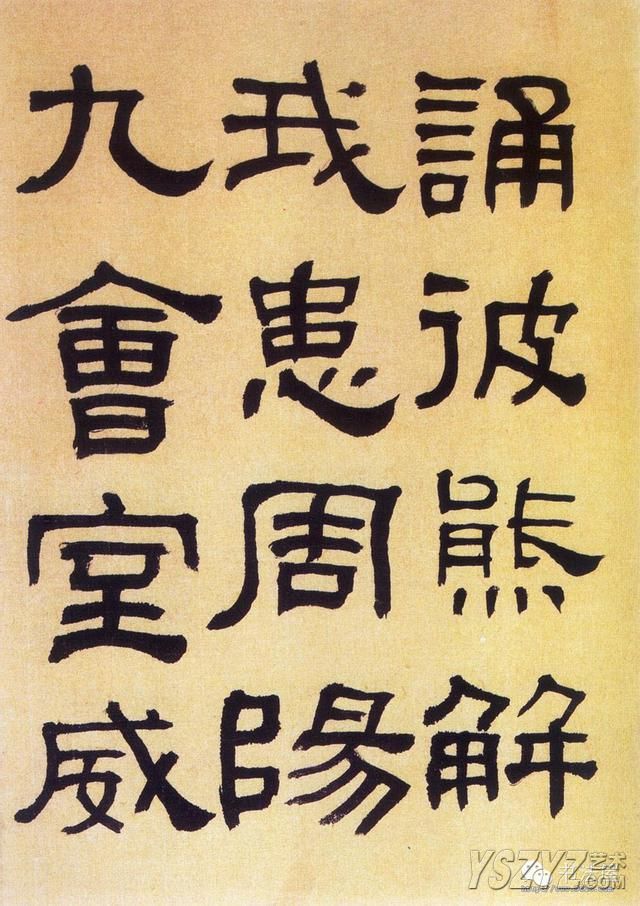 誦彼熊解
我患周陽
九會室威
YSZYZ艺术
.COM